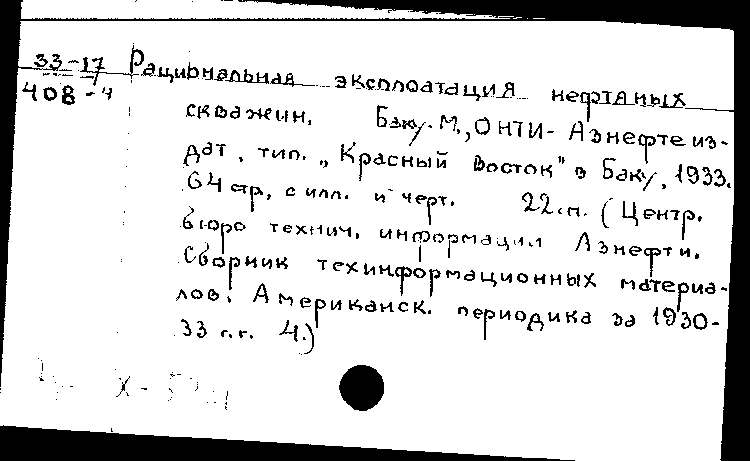 33-17 Рациональная эксплоатация нефтяных
408-4
скважин. Баку. М., ОНТИ - Азнефтеиз-
дат, тип. „Красный Восток" в Баку, 1933.
64 стр, с илл. и черт. 22 см. (Центр.
бюро технич. информации Азнефти.
Сборник техинформационных материа-
лов. Американск. периодика за 1930-
33 г.г. 4.)
X-5